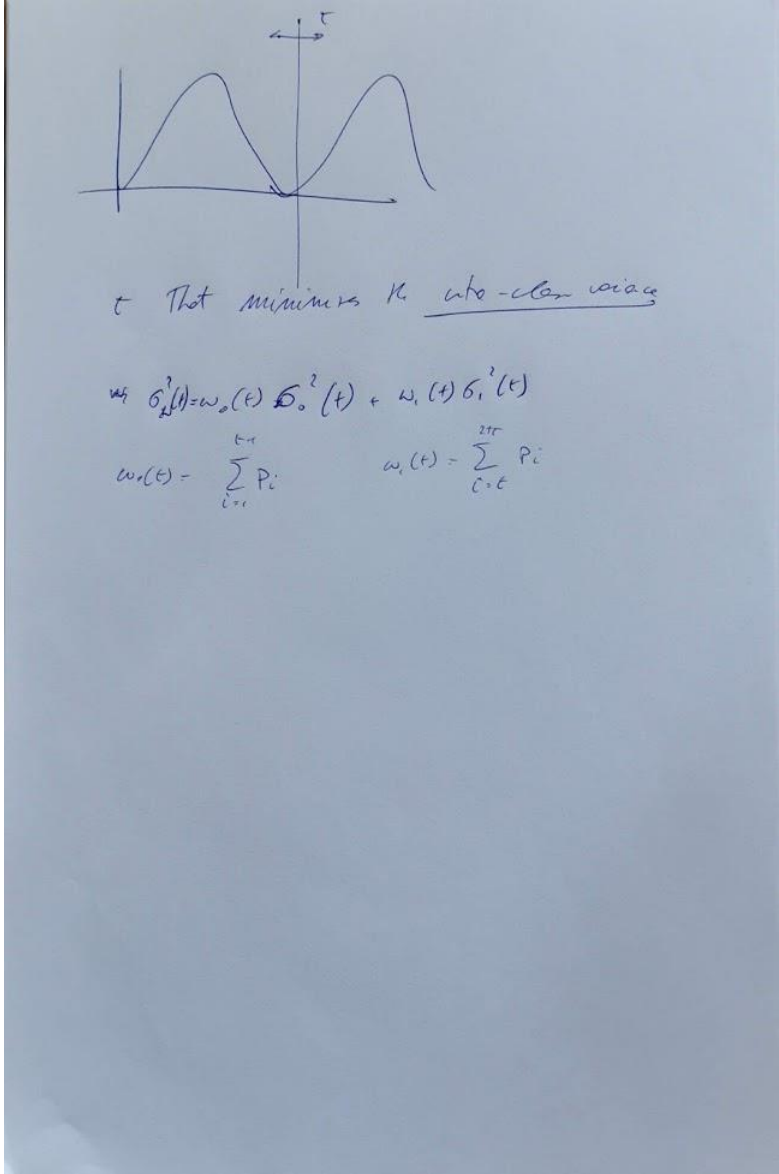 t
t That minimizes the intra-class variance
σ_w²(t)=ω₀(t) σ₀²(t) + ω₁(t) σ₁²(t)
ω₀(t) = ∑_{i=1}^{t-1} Pi ω₁(t) = ∑_{i=t} Pi